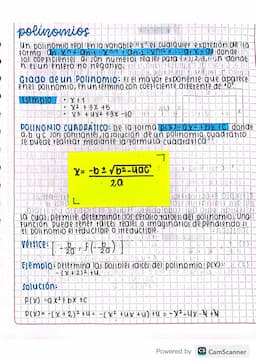 polinomios
Un polinomio real en la variable "x" es cualquier expresión de la
forma
los coeficientes ai son números reales para donde
n es un entero no negativo.
Grado de un Polinomio: Es el mayor exponente que aparece
en el polinomio, en un término con coeficiente diferente de "0".
Ejemplo • x+1
• x² + 3x + 5
POLINOMIO CUADRÁTICO: De la forma donde
a, b y c son constantes, la solución de un polinomio cuadrático
se puede realizar mediante la fórmula cuadrática:
x = -b ± √b²-4ac
2a
la cual permite determinar los ceros o raíces del polinomio. Una
función puede tener raíces reales o imaginarios dependiendo si
el polinomio es reducible o irreducible.
Vértice: [ -b/2a , f(-b/2a) ]
Ejemplo: Determina las posibles raíces del polinomio: P(x)=
-(x+2)²+4.
Solución:
P(x) = ax² + bx + c
P(x) = -(x+2)²+4 = -(x²+4x+4)+4 = -x²-4x-4+4
Powered by CS CamScanner